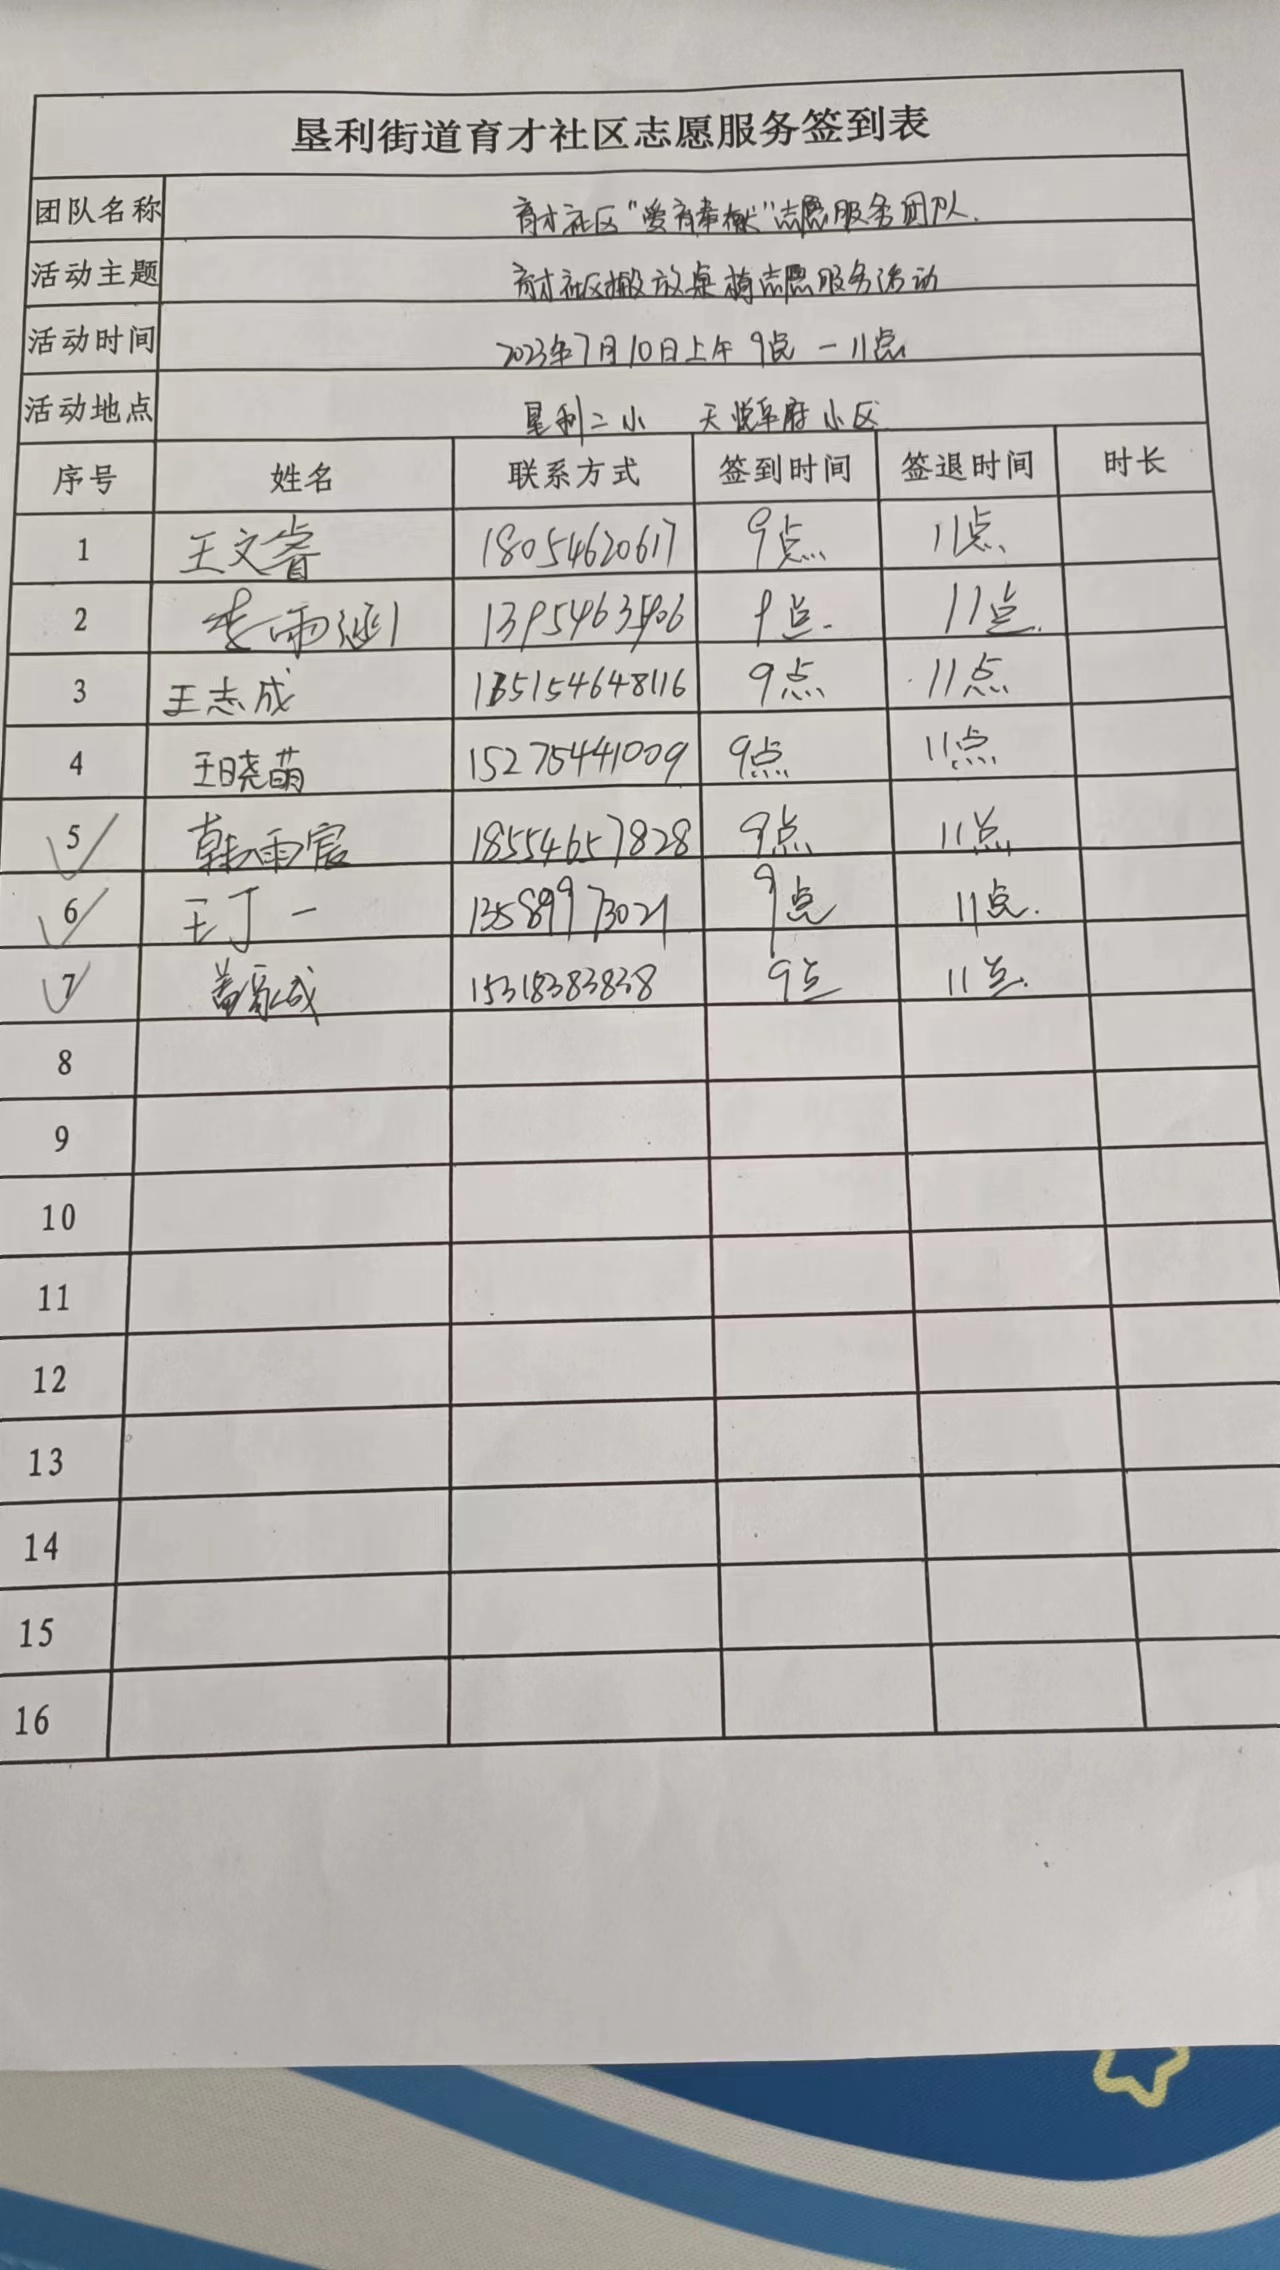 垦利街道育才社区志愿服务签到表
团队名称 育才社区"爱育幸树"志愿服务团队.
活动主题 育才社区搬放桌椅志愿服务活动
活动时间 2023年7月10日上午9点一11点
活动地点 垦利二小 天悦华府小区
序号 姓名 联系方式 签到时间 签退时间 时长
1 王文睿 18054620617 9点 11点
2 李雨 13954635906 9点. 11点.
3 王志成 135154648116 9点 11点
4 王晓萌 15275441009 9点 11点
5 韩雨宸 18554657828 9点 11点
6 王丁一 13589973021 9点 11点.
7 盖家成 15318383838 9点 11点.
8
9
10
11
12
13
14
15
16